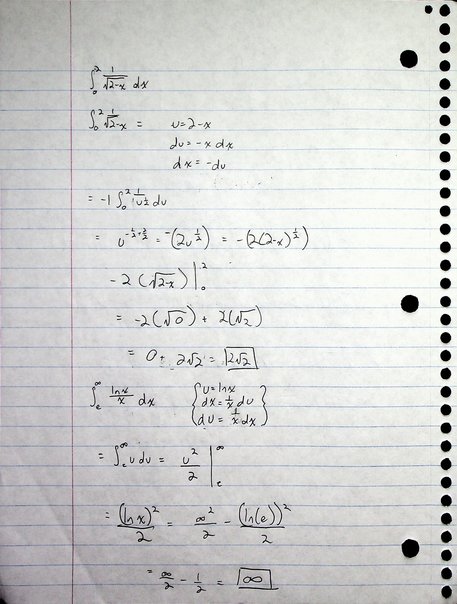 ∫₀² 1/√(2-x) dx
∫₀² 1/√(2-x) = u=2-x
du = -x dx
dx = -du
= -1 ∫₀² 1/u^(1/2) du
= u^(-1/2+2/2) = -(2u^(1/2)) = -(2(2-x)^(1/2))
-2(√(2-x)) |₀²
= -2(√0) + 2(√2)
= 0 + 2√2 = 2√2
∫ₑ^∞ lnx/x dx { u=lnx
dx = 1/x du
du = 1/x dx }
= ∫ₑ^∞ u du = u²/2 |ₑ^∞
= (lnx)²/2 = ∞²/2 - (ln(e))²/2
= ∞/2 - 1/2 = ∞